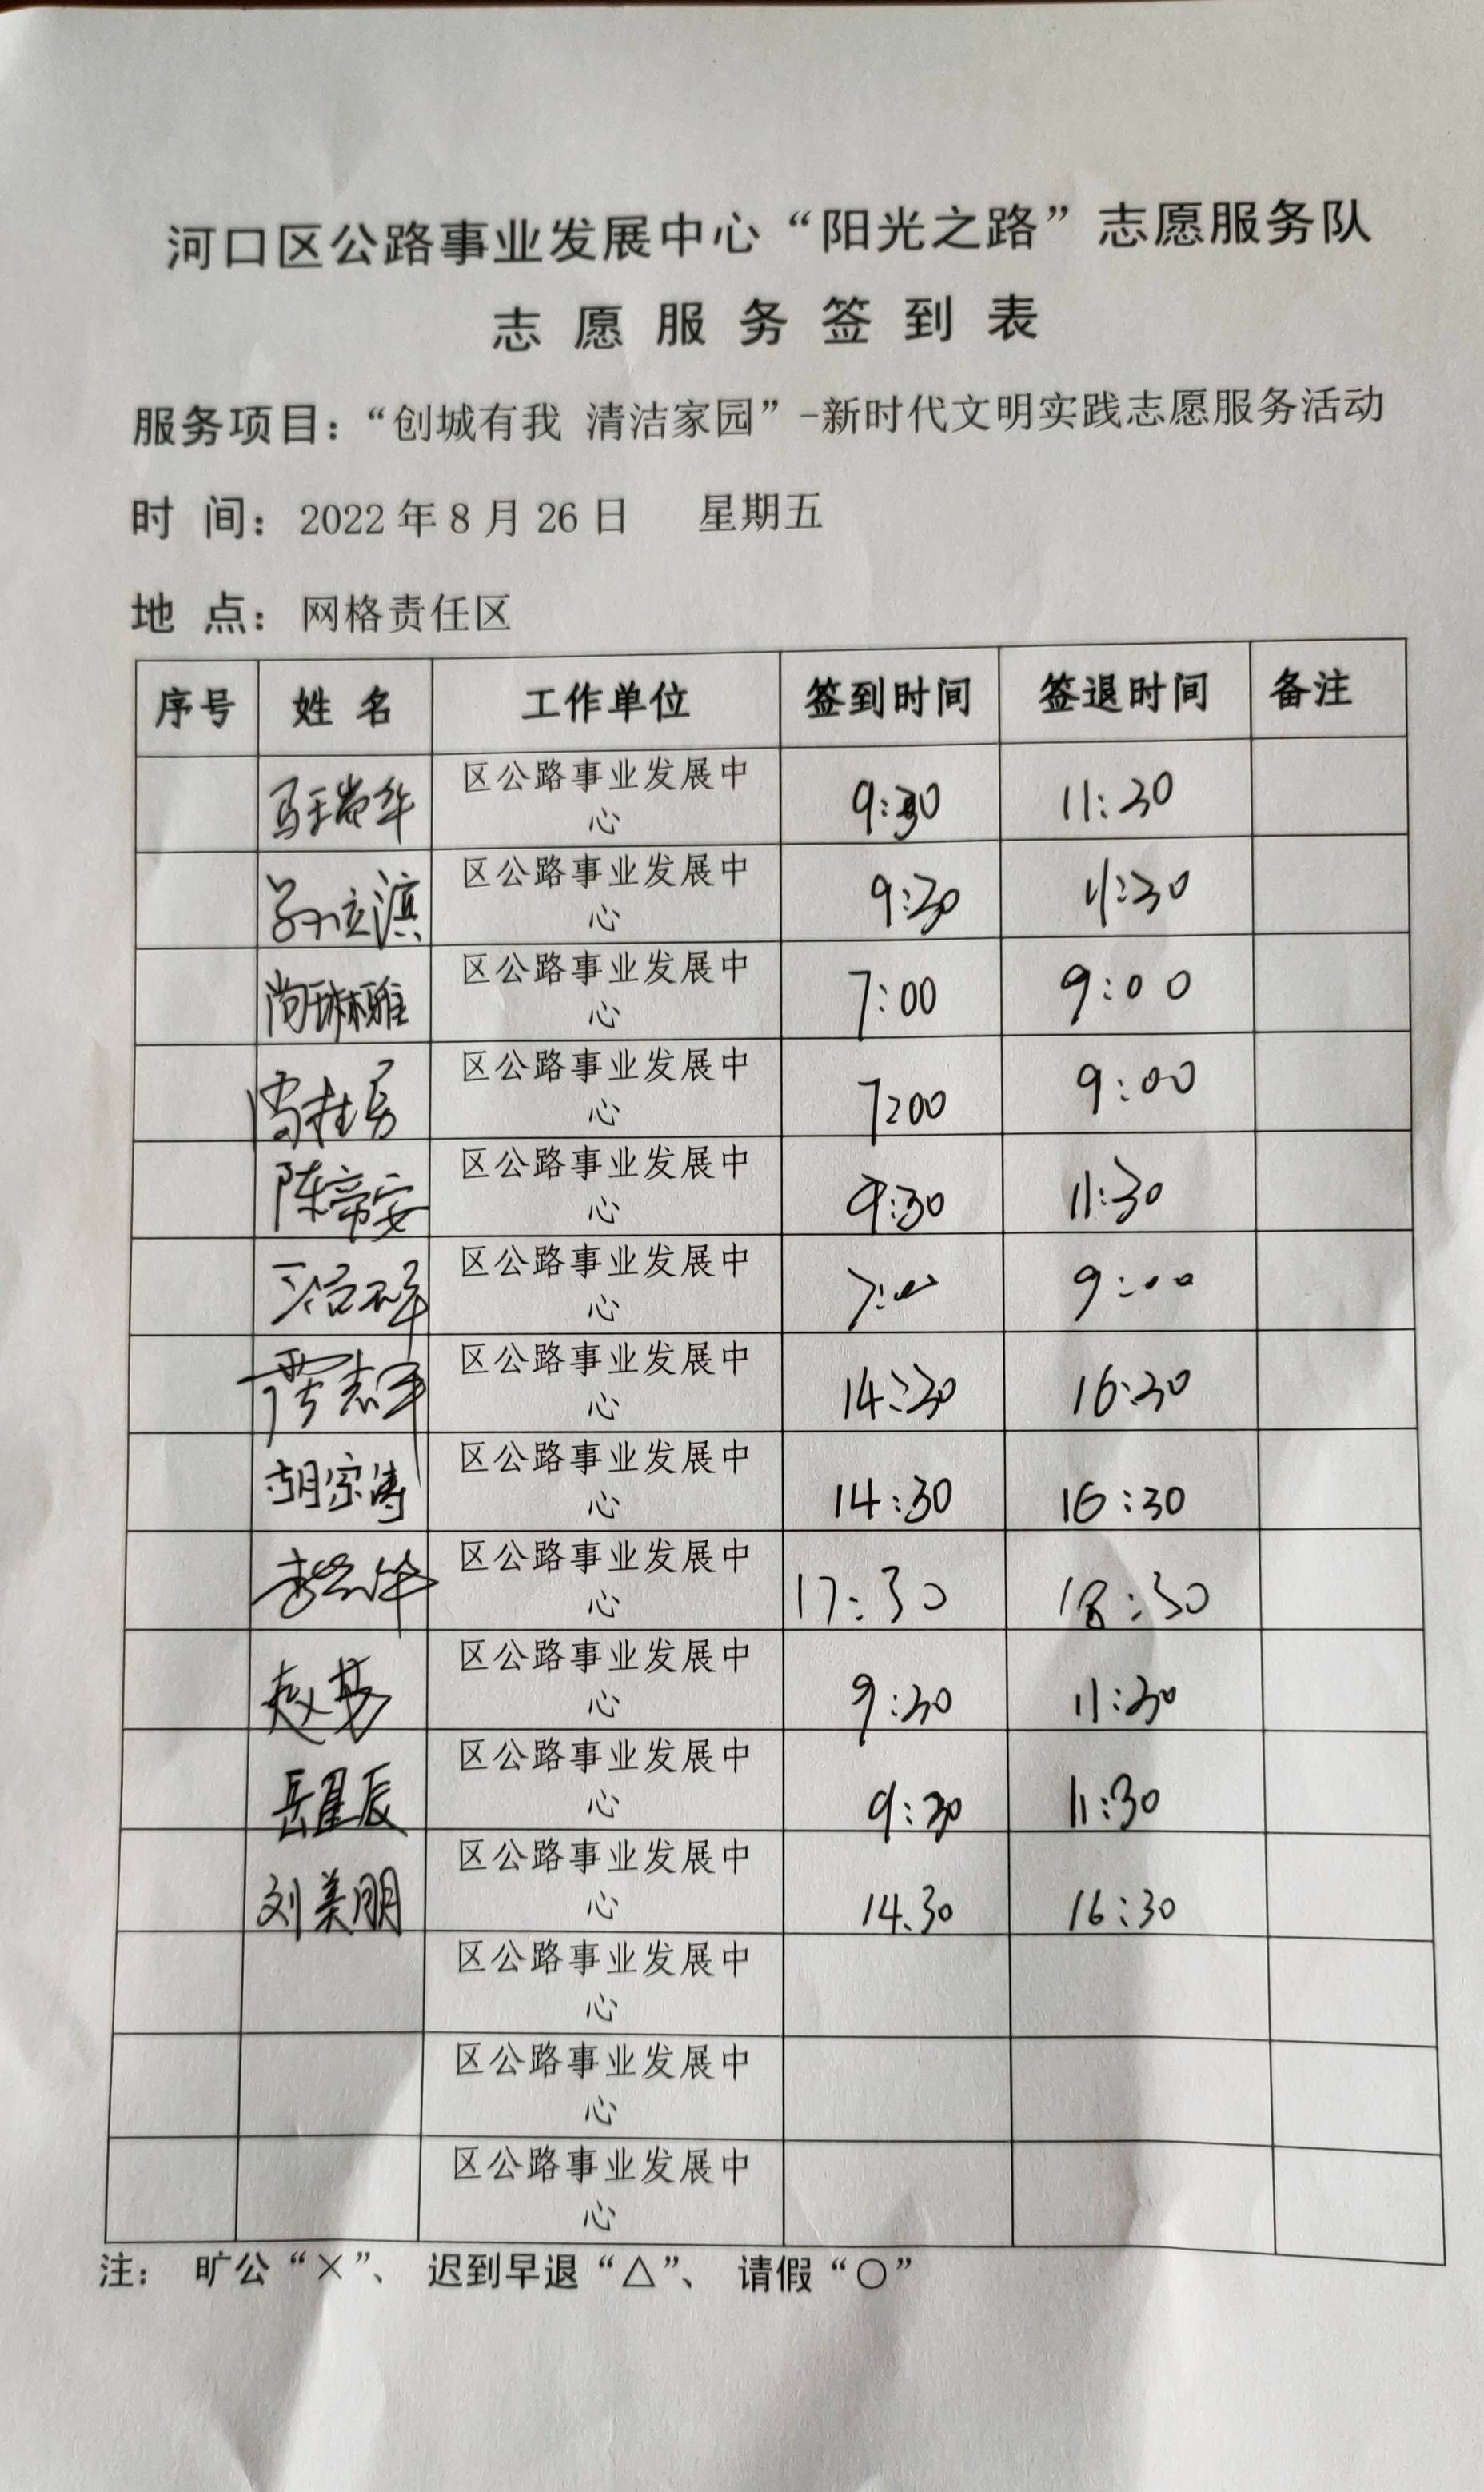 河口区公路事业发展中心“阳光之路”志愿服务队
志愿服务签到表
服务项目：“创城有我 清洁家园”-新时代文明实践志愿服务活动
时 间：2022年8月26日 星期五
地 点：网格责任区
序号 姓名 工作单位 签到时间 签退时间 备注
马瑞华 区公路事业发展中 9:30 11:30
心
区公路事业发展中 9:30 11:30
心
尚琳雅 区公路事业发展中 7:00 9:00
心
区公路事业发展中 7:00 9:00
心
陈帝安 区公路事业发展中 9:30 11:30
心
区公路事业发展中 7:00 9:00
心
贾志军 区公路事业发展中 14:30 16:30
心
胡宗涛 区公路事业发展中 14:30 16:30
心
区公路事业发展中 17:30 18:30
心
区公路事业发展中 9:30 11:30
心
岳星辰 区公路事业发展中 9:30 11:30
心
刘美朋 区公路事业发展中 14.30 16:30
心
区公路事业发展中
心
区公路事业发展中
心
区公路事业发展中
心
注： 旷公“×”、 迟到早退“△”、 请假“○”